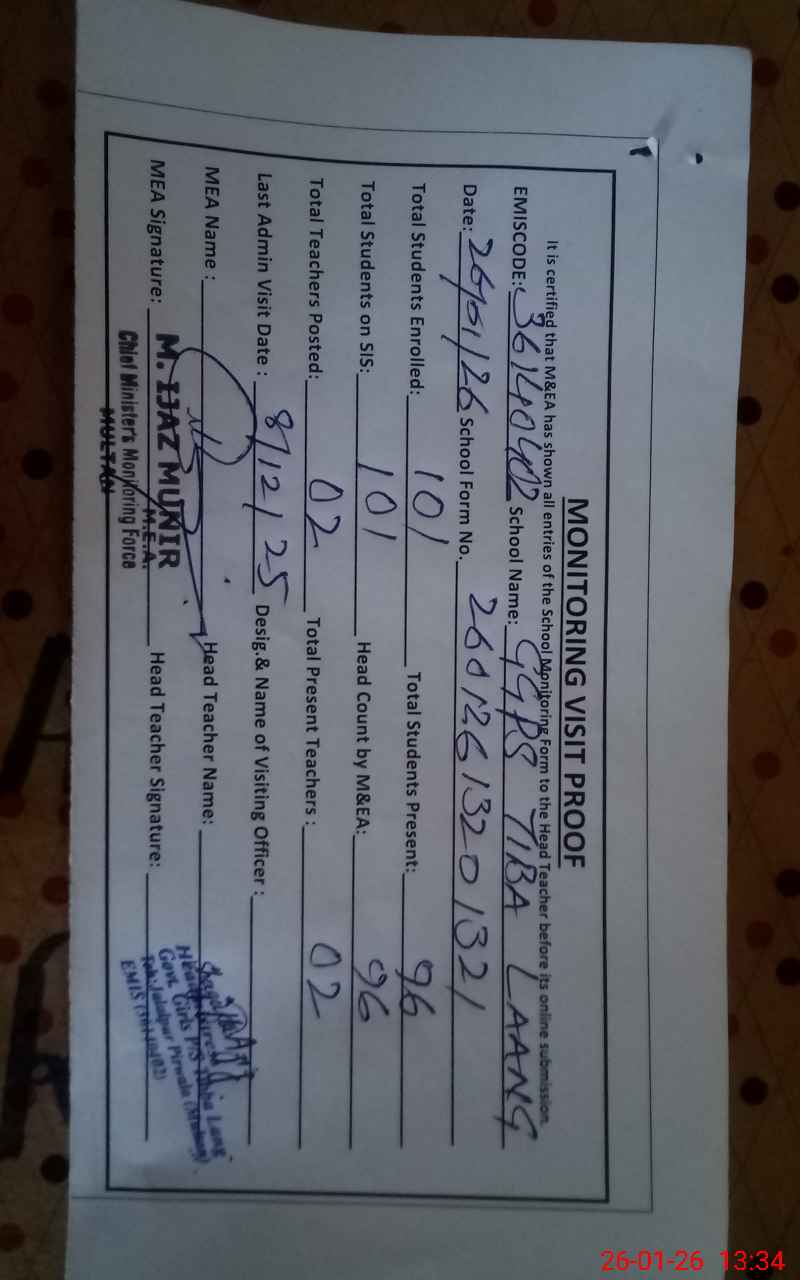 MONITORING VISIT PROOF
It is certified that M&EA has shown all entries of the School Monitoring Form to the Head Teacher before its online submission.
EMISCODE: 36140402 School Name: GGPS TIBA LAANG
Date: 26/01/26 School Form No. 26012613201321
Total Students Enrolled: 101 Total Students Present: 96
Total Students on SIS: 101 Head Count by M&EA: 96
Total Teachers Posted: 02 Total Present Teachers : 02
Last Admin Visit Date : 8/12/25 Desig.& Name of Visiting Officer :
MEA Name : Head Teacher Name:
MEA Signature: Head Teacher Signature:
M. IJAZ MUNIR
M.E.A.
Chief Minister's Monitoring Force
MULTAN
Govt. Girls P/S Lang
Teh: Jalalpur Pirwala (Multan)
EMIS (36140402)
26-01-26 13:34